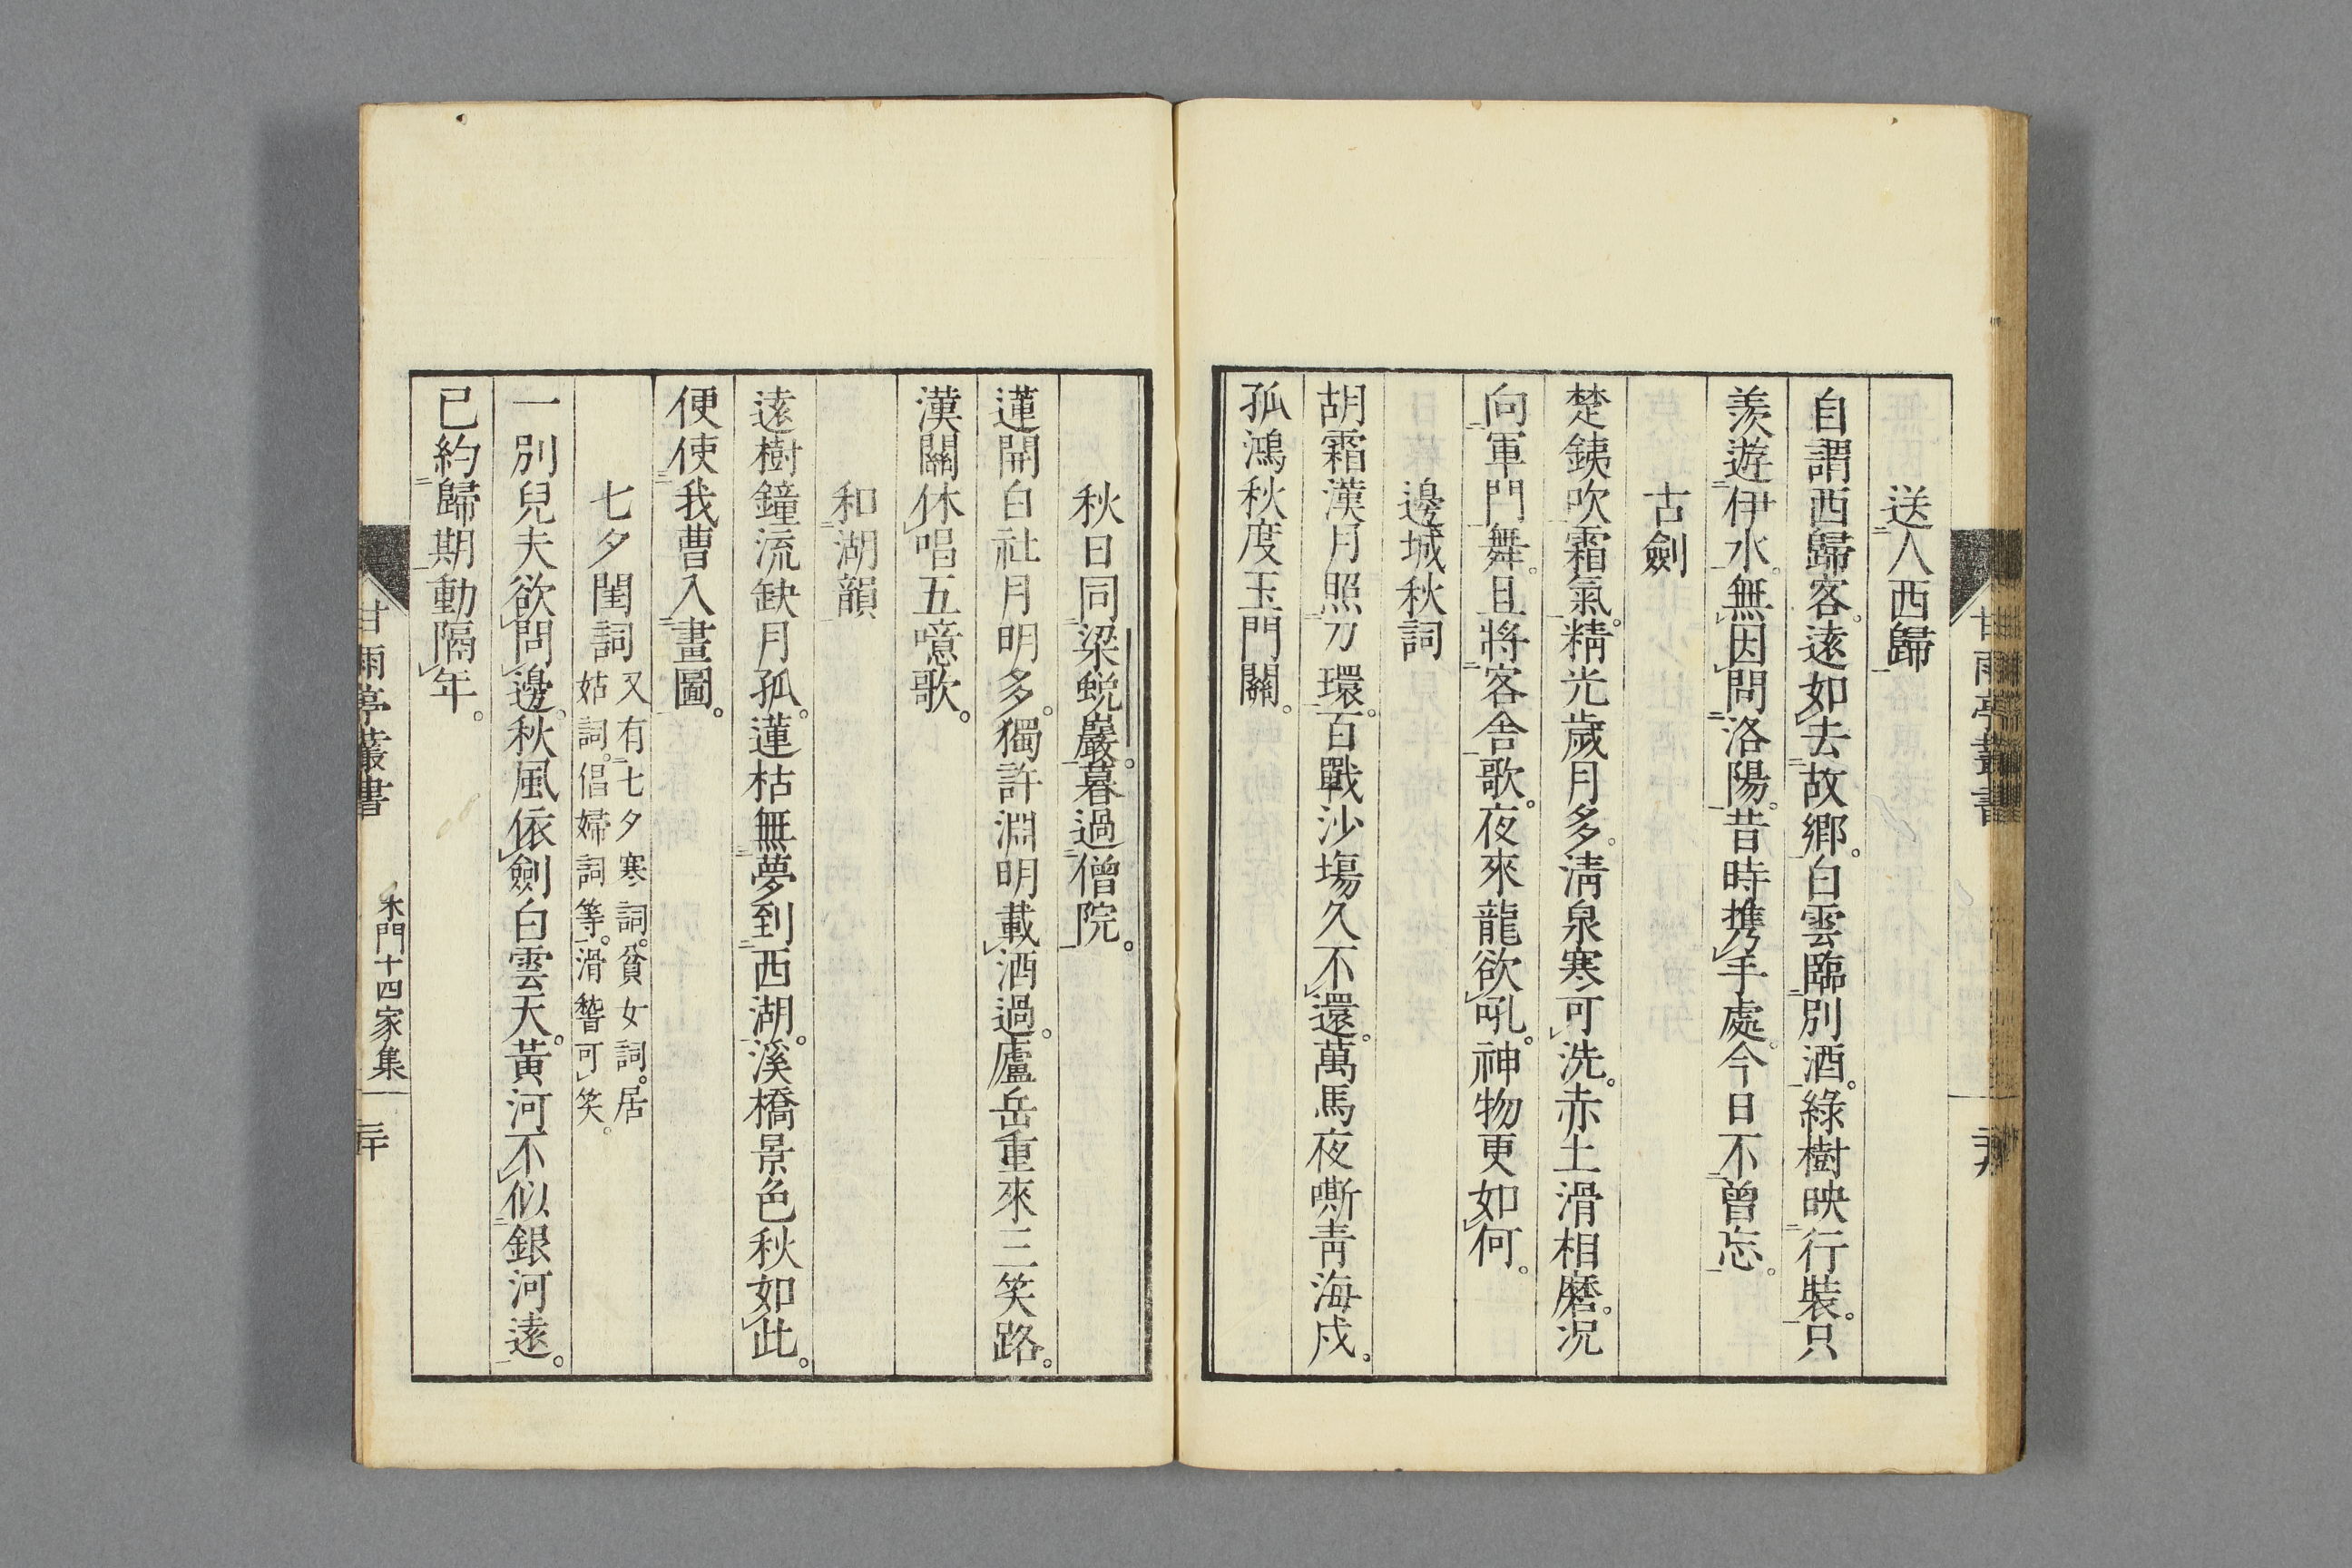 送人西歸
自謂西歸客。遠如去故鄉。白雲臨別酒。綠樹映行裝。只
羨遊伊水。無因問洛陽。昔時携手處。今日不曾忘。
古劍
楚鋏吹霜氣。精光歲月多。淸泉寒可洗。赤土滑相磨。况
向軍門舞。且將客舍歌。夜來龍欲吼。神物更如何。
邊城秋詞
胡霜漢月照刀環。百戰沙塲久不還。萬馬夜嘶靑海戍。
孤鴻秋度玉門關。
甘雨亭叢書
秋日同梁蛻巖。暮過僧院。
蓮開白社月明多。獨許淵明載酒過。廬岳重來三笑路。
漢關休唱五噫歌。
和湖韻
遠樹鐘流缺月孤。蓮枯無夢到西湖。溪橋景色秋如此。
便使我曹入畫圖。
七夕閨詞 又有七夕寒詞。貧女詞。居
姑詞。倡婦詞等。滑稽可笑。
一別兒夫欲問邊。秋風依劍白雲天。黃河不似銀河遠。
已約歸期動隔年。
甘雨亭叢書 木門十四家集 三十